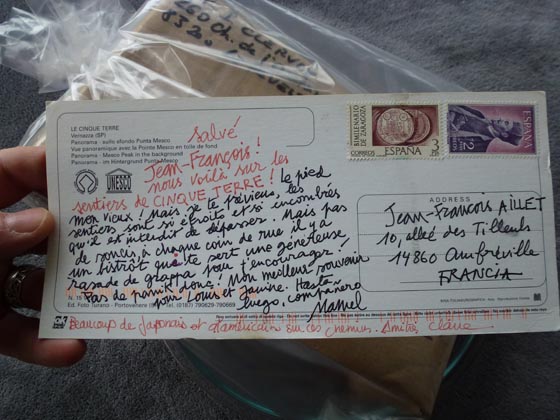 260 Ch. de l
8320
LE CINQUE TERRE
Vernazza (SP)
Panorama - sullo sfondo Punta Mesco
Vue panoramique avec la Pointe Mesco en toile de fond
Panorama - Mesco Peak in the background
Panorama - im Hintergrund Punta Mesco
UNESCO
BIMILENARIO DE ZARAGOZA
CORREOS
ESPAÑA
3 PTS
ESPAÑA
2
CORREOS
salvé
Jean-François!
nous voilà sur les
sentiers de CINQUE TERRE! le pied
mon vieux! Mais je te préviens, les
sentiers sont si étroits et si encombrés
qu'il est interdit de dépasser. Mais pas
de soucis, à chaque coin de rue il y a
un bistrôt qui te sert une généreuse
rasade de grappa pour t'encourager!
Pas de panique donc. Mon meilleur souvenir
pour Louis et Janine. Hasta
luego, compañero
Manuel
N. 15
Ed. Foto Turano - Portovenere (SP) (0187) 790629-790669
Beaucoup de Japonais et d'américain sur ces chemins. Amitiés Claire
ADDRESS
Jean-François AILLET
10, allée des Tilleuls
14860 Amfréville
FRANCIA